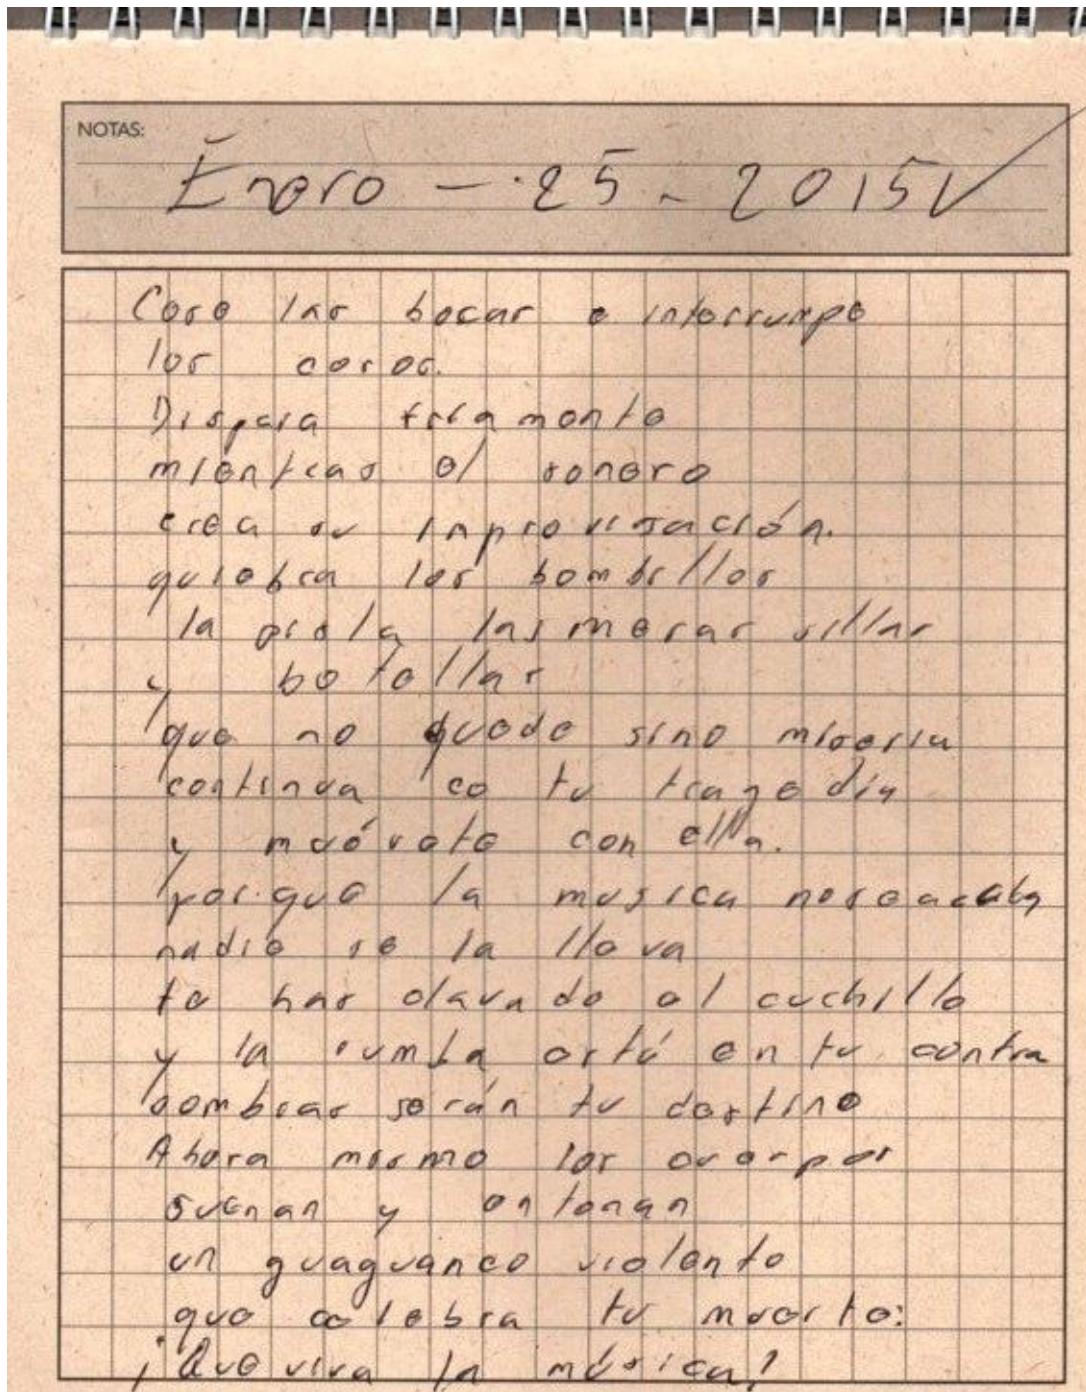 NOTAS:
Enero - 25 - 2015
Cose las bocas e interrumpe
los coros.
Dispara friamente
mientras el sonero
crea su improvisación.
quiebra los bombillos
la las mesas sillas
y botellas
que no quede sino miseria
continua co tu tragedia
y muévete con ella.
porque la musica no se acaba
nadie se la lleva
te has clavado el cuchillo
y la rumba está en tu contra
sombras serán tu destino
Ahora mismo los cuerpos
suenan y entonan
un guaguanco violento
que celebra tu muerte:
¡Que viva la música!